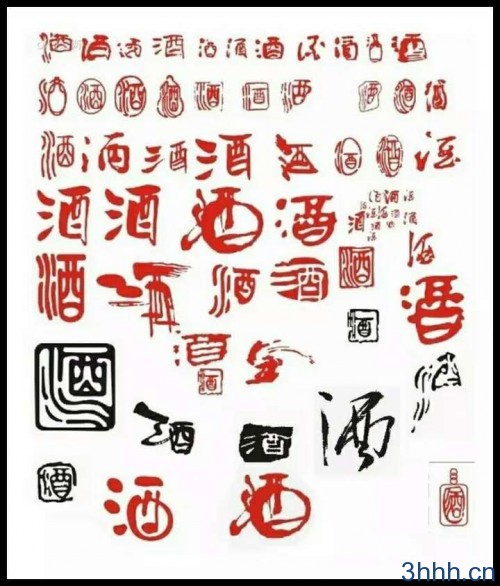 酒酒酒酒酒酒酒酒酒酒酒
酒酒酒酒酒酒酒酒酒酒
酒酒酒酒酒酒酒酒
酒酒酒酒酒
酒酒酒酒酒酒酒
酒酒酒酒
酒酒酒酒酒
酒酒酒酒
3hhh.cn